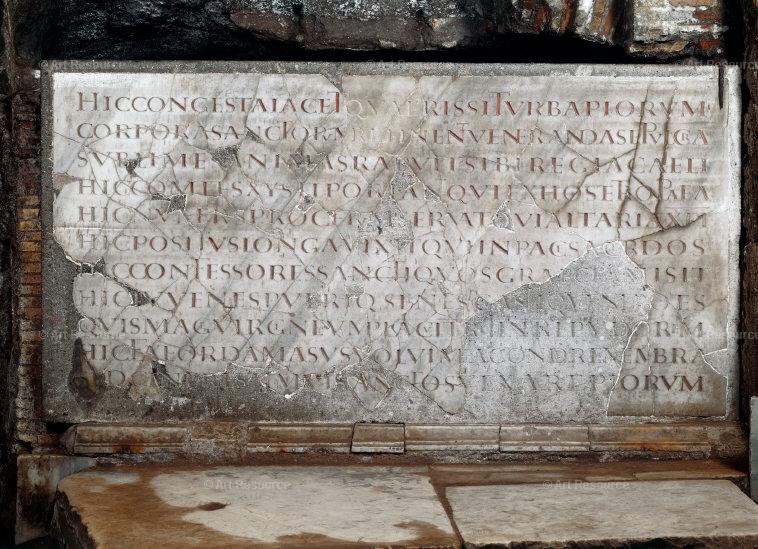 HIC CONGESTA IACET QVAERIS SI TVRBA PIORVM
CORPORA SANCTORVM RETINENT VENERANDA SEPVLCRA
SVBLIMES ANIMAS RAPVIT SIBI REGIA CAELI
HIC COMITES XYSTI PORTANT QVI EX HOSTE TROPAEA
HIC NVMERVS PROCERVM SERVAT QVI ALTARIA XPI
HIC POSITVS LONGA VIXIT QVI IN PACE SACERDOS
HIC CONFESSORES SANCTI QVOS GRAECIA MISIT
HIC IVVENES PVERIQ SENES CASTIQVE NEPOTES
QVIS MAG VIRGINEVM PLACVIT RETINERE PVDOREM
HIC FATEOR DAMASVS VOLVI MEA CONDERE MEMBRA
SED CINERES TIMVI SANCTOS VEXARE PIORVM
© Art Resource
© Art Resource
© Art Resource
© Art Resource